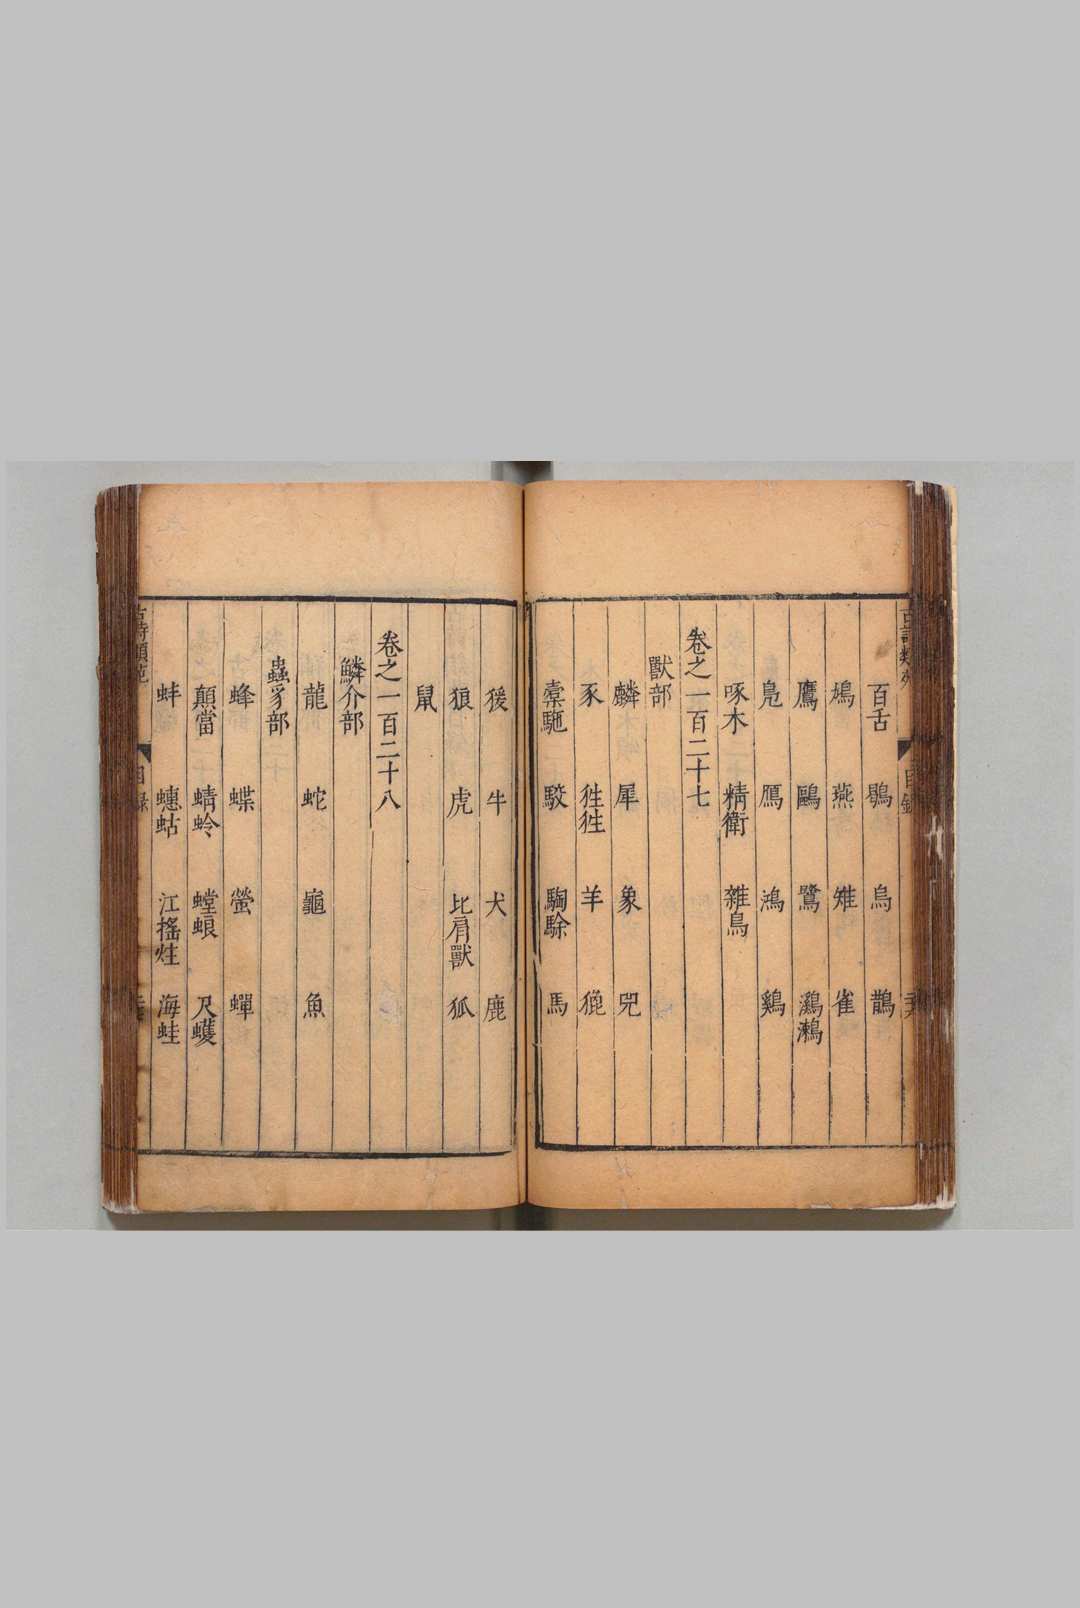 百舌 鶪 烏 鵲
鳩 燕 雉 雀
鷹 鷗 鷺 鸂鶒
鳧 鴈 鴻 鷄
啄木 精衛 雜鳥
卷之一百二十七
獸部
麟 犀 象 兕
豕 狌狌 羊
橐駞 駮 騊駼 馬
猨 牛 犬 鹿
狼 虎 比肩獸 狐
鼠
卷之一百二十八
鱗介部
龍 蛇 龜 魚
蟲豸部
蜂 蝶 螢 蟬
顛當 蜻蛉 螳蜋 尺蠖
蚌 蟪蛄 江搖 海蛙
古詩類苑
目錄